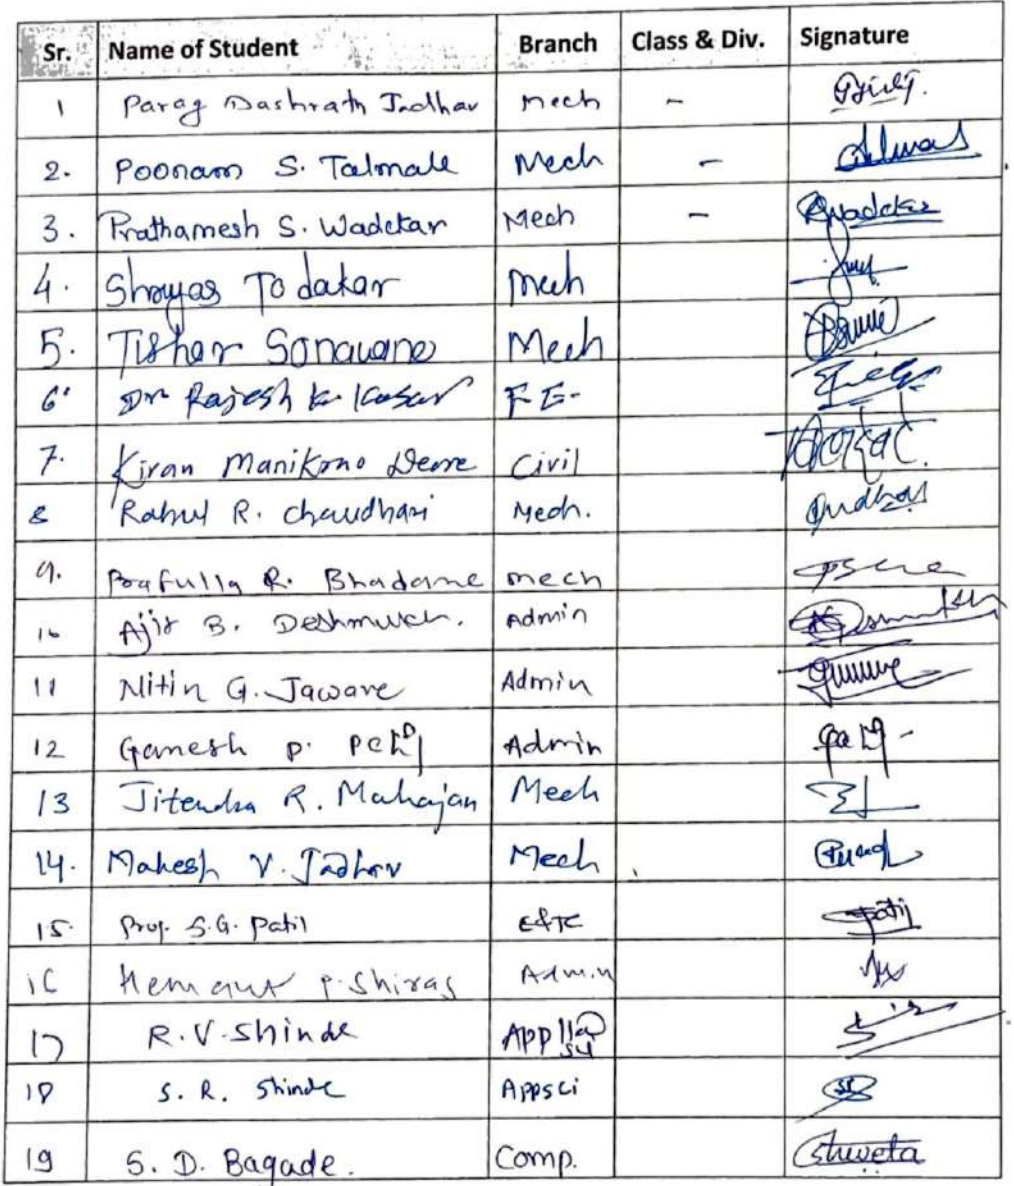 Sr. Name of Student Branch Class & Div. Signature
1 Parag Dashrath Jadhav Mech -
2. Poonam S. Talmale Mech -
3. Prathamesh S. Wadekar Mech - Wadekar
4. Shreyas Todakar Mech
5. Tishar Sonawane Mech
6. Dr Rajesh K. Kasar F.E.
7. Kiran Deore Civil
8 Rahul R. Chaudhari Mech.
9. Prafulla R. Bhadane Mech
10 Ajit B. Deshmukh. Admin
11 Nitin G. Jaware Admin
12 Ganesh P. Admin
13 Jitendra R. Mahajan Mech
14. Mahesh V. Jadhav Mech
15. Prof. S.G. Patil E&TC Patil
16 Hemant P. Shiras Admin
17 R.V. Shinde
18 S. R. Shinde Appsci
19 S. D. Bagade. Comp. Shweta